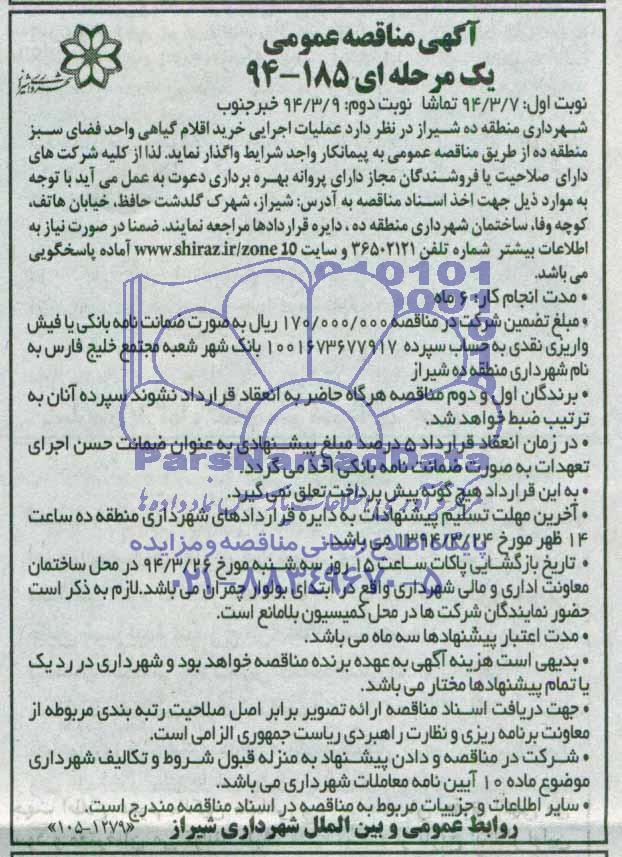 آگهی مناقصه عمومی
یک مرحله ای ۱۸۵-۹۴
شهرداری شیراز
نوبت اول: ۹۴/۳/۷ تماشا نوبت دوم: ۹۴/۳/۹ خبرجنوب
شهرداری منطقه ده شیراز در نظر دارد عملیات اجرایی خرید اقلام گیاهی واحد فضای سبز
منطقه ده از طریق مناقصه عمومی به پیمانکار واجد شرایط واگذار نماید. لذا از کلیه شرکت های
دارای صلاحیت یا فروشندگان مجاز دارای پروانه بهره برداری دعوت به عمل می آید با توجه
به موارد ذیل جهت اخذ اسناد مناقصه به آدرس: شیراز، شهرک گلدشت حافظ، خیابان هاتف،
کوچه وفا، ساختمان شهرداری منطقه ده، دایره قراردادها مراجعه نمایند. ضمنا در صورت نیاز به
اطلاعات بیشتر شماره تلفن ۳۶۵۰۲۱۲۱ و سایت www.shiraz.ir/zone 10 آماده پاسخگویی
می باشد.
• مدت انجام کار: ۶ ماه
• مبلغ تضمین شرکت در مناقصه ۱۷۰/۰۰۰/۰۰۰ ریال به صورت ضمانت نامه بانکی یا فیش
واریزی نقدی به حساب سپرده ۱۰۰۱۶۷۳۶۷۷۹۱۷ بانک شهر شعبه مجتمع خلیج فارس به
نام شهرداری منطقه ده شیراز
• برندگان اول و دوم مناقصه هرگاه حاضر به انعقاد قرارداد نشوند سپرده آنان به
ترتیب ضبط خواهد شد.
• در زمان انعقاد قرارداد ۵ درصد مبلغ پیشنهادی به عنوان ضمانت حسن اجرای
تعهدات به صورت ضمانت نامه بانکی اخذ می گردد.
ParsNamadData
• به این قرارداد هیچ گونه پیش پرداخت تعلق نمی گیرد.
• آخرین مهلت تسلیم پیشنهادات به دایره قراردادهای شهرداری منطقه ده ساعت
۱۴ ظهر مورخ ۱۳۹۴/۳/۲۴ می باشد.
پایگاه اطلاع رسانی مناقصه و مزایده
• تاریخ بازگشایی پاکات ساعت ۱۵ روز سه شنبه مورخ ۹۴/۳/۲۶ در محل ساختمان
۰۲۱-۸۸۳۴۹۶۷۰-۵
معاونت اداری و مالی شهرداری واقع در ابتدای بولوار چمران می باشد. لازم به ذکر است
حضور نمایندگان شرکت ها در محل کمیسیون بلامانع است.
• مدت اعتبار پیشنهادها سه ماه می باشد.
• بدیهی است هزینه آگهی به عهده برنده مناقصه خواهد بود و شهرداری در رد یک
یا تمام پیشنهادها مختار می باشد.
• جهت دریافت اسناد مناقصه ارائه تصویر برابر اصل صلاحیت رتبه بندی مربوطه از
معاونت برنامه ریزی و نظارت راهبردی ریاست جمهوری الزامی است.
• شرکت در مناقصه و دادن پیشنهاد به منزله قبول شروط و تکالیف شهرداری
موضوع ماده ۱۰ آیین نامه معاملات شهرداری می باشد.
• سایر اطلاعات و جزییات مربوط به مناقصه در اسناد مناقصه مندرج است.
روابط عمومی و بین الملل شهرداری شیراز «۱۰۵-۱۲۷۹»